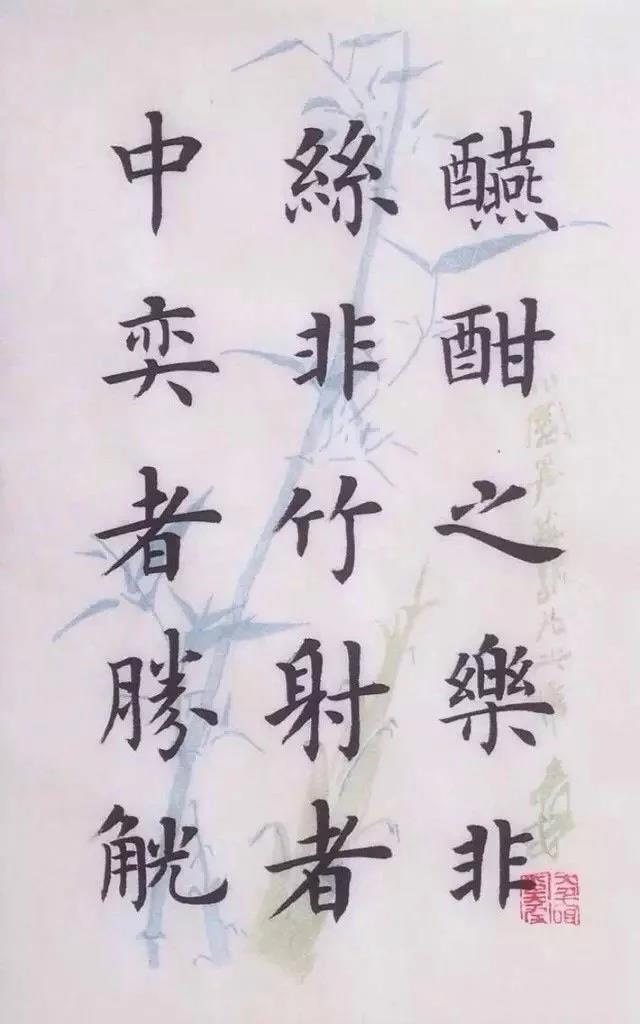 醼酣之樂非
絲非竹射者
中奕者勝觥